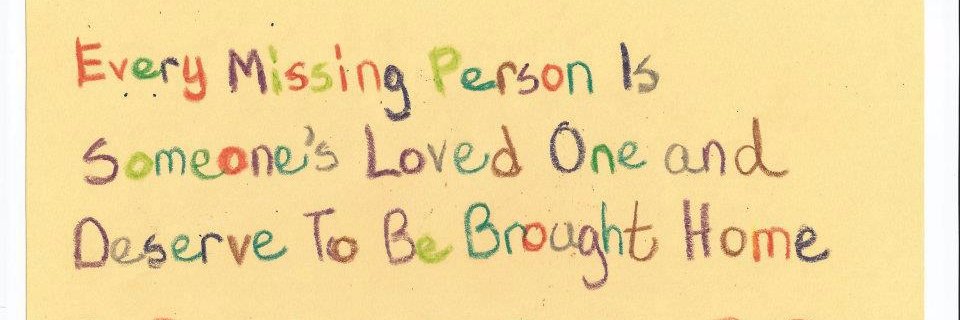 Every Missing Person Is
Someone's Loved One and
Deserve To Be Brought Home